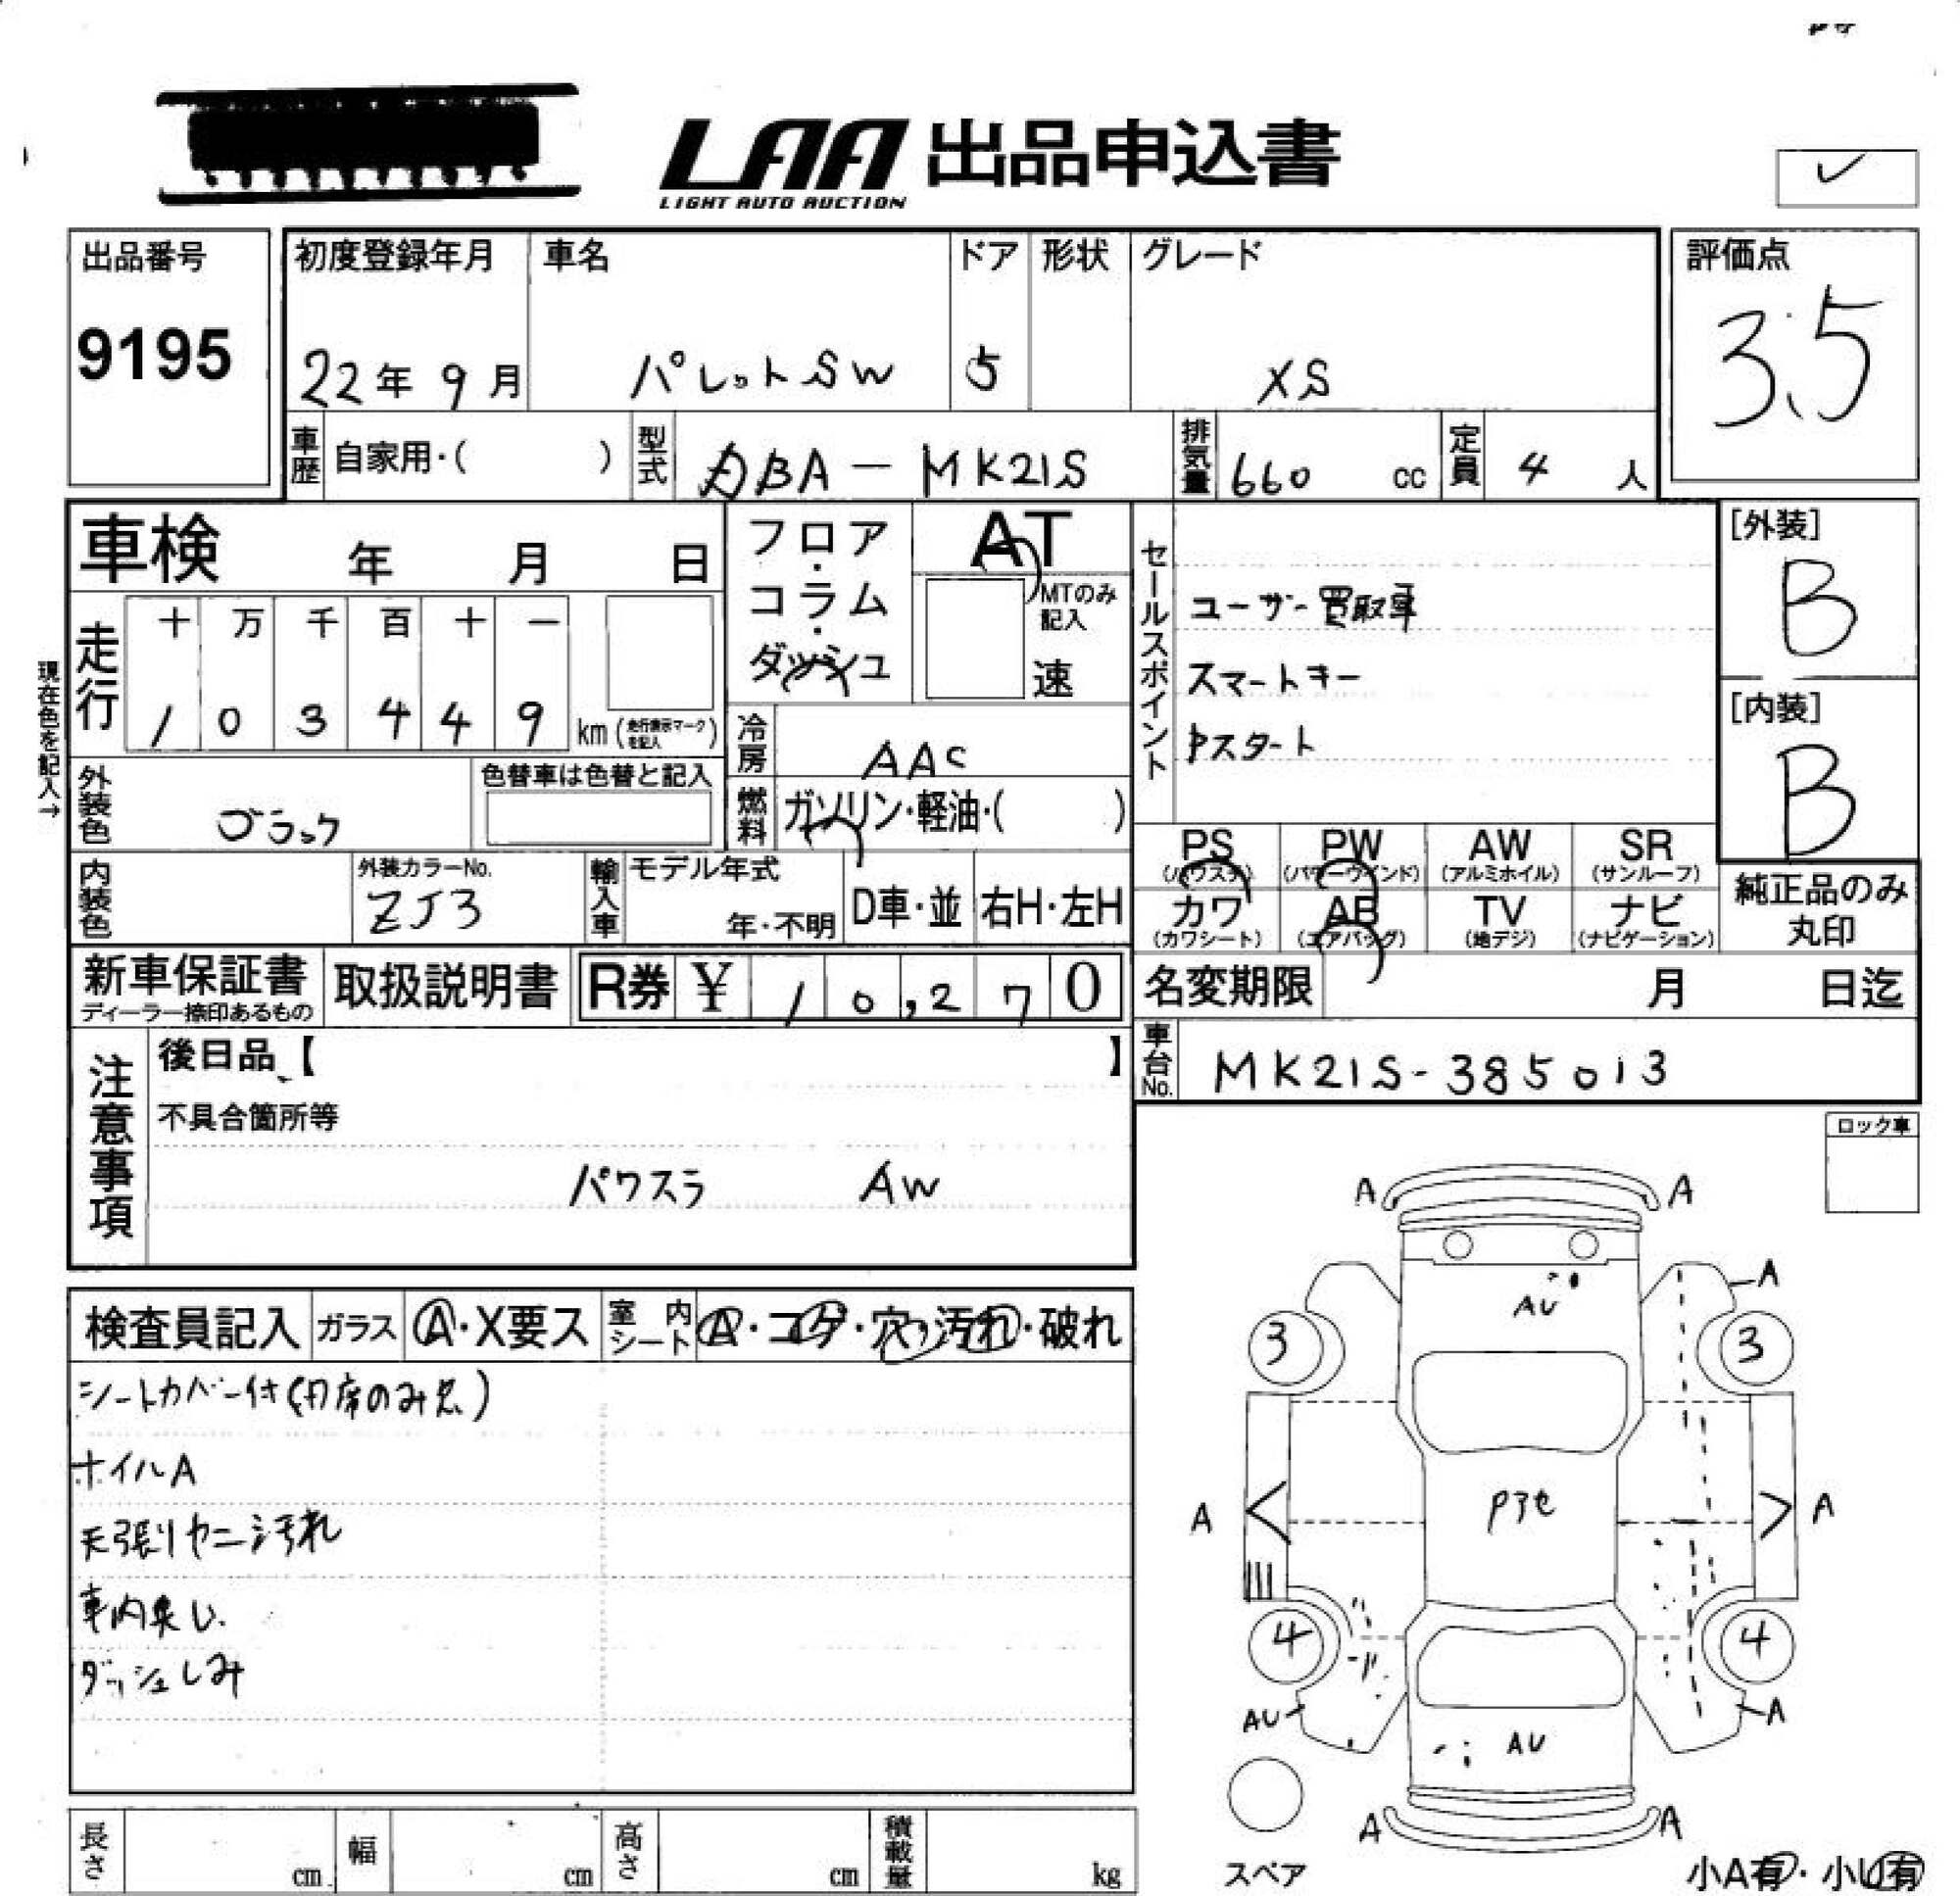 LAA 出品申込書
LIGHT AUTO AUCTION
出品番号
9195
初度登録年月
22年 9月
車名
パレットSW
ドア
5
形状
グレード
XS
評価点
3.5
車歴 自家用・( )
型式 DBA-MK21S
排気量 660 cc
定員 4 人
車検 年 月 日
フロア・コラム・ダッシュ
AT
MTのみ記入
速
セールスポイント
ユーザー買取車
スマートキー
Pスタート
[外装]
B
[内装]
B
現在色を記入→
走行
十 万 千 百 十 一
1 0 3 4 4 9 km (走行表示マークを記入)
冷房 AAC
外装色 ブラック
色替車は色替と記入
燃料 ガソリン・軽油・( )
内装色
外装カラーNo.
ZJ3
輸入車 モデル年式
年・不明
D車・並
右H・左H
PS (パワステ)
PW (パワーウインド)
AW (アルミホイル)
SR (サンルーフ)
カワ (カワシート)
AB (エアバッグ)
TV (地デジ)
ナビ (ナビゲーション)
純正品のみ丸印
新車保証書
ディーラー捺印あるもの
取扱説明書
R券 ¥ 10,270
名変期限 月 日迄
注意事項
後日品【 】
不具合箇所等
パワスラ AW
車台No. MK21S-385013
ロック車
検査員記入
ガラス A・X要ス
室内シート A・コゲ・穴・汚れ・破れ
シートカバー付
ホイルA
天張りヤニ汚れ
車内臭い
ダッシュしみ
A A
AU A
3 3
A Pアセ A
4 4
AU AU A
A A
スペア
小A有・小U有
長さ cm 幅 cm 高さ cm 積載量 kg